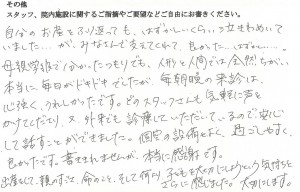 その他
スタッフ、院内施設に関するご指摘やご要望などご自由にお書きください。
自分のお産をふり返っても、はずかしいくらい泣きわめいて
いました…が、みなさんで支えてくれて、良かった…はずかし…。
母親学級で分かったつもりでも、人形と人間では全然ちがい
本当に毎日がドキドキでしたが、毎朝晩の来診は、
心強く、うれしかったです。どのスタッフさんも気軽に声を
かけてくださり、又、外来でも診療していただいているので安心
して話すことができました。個室の設備もよく、過ごしやすく、
良かったです。書ききれませんが、本当に感謝です。
出産をして、親のすごさ、命のこと、そして何より子どもを大切にしようという気持ちを
さらに感じました。大切にします。